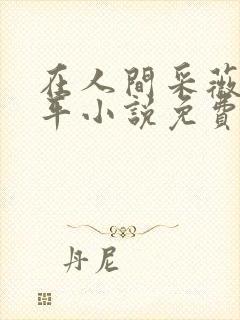 在人間采薇
年小說免費
丹尼